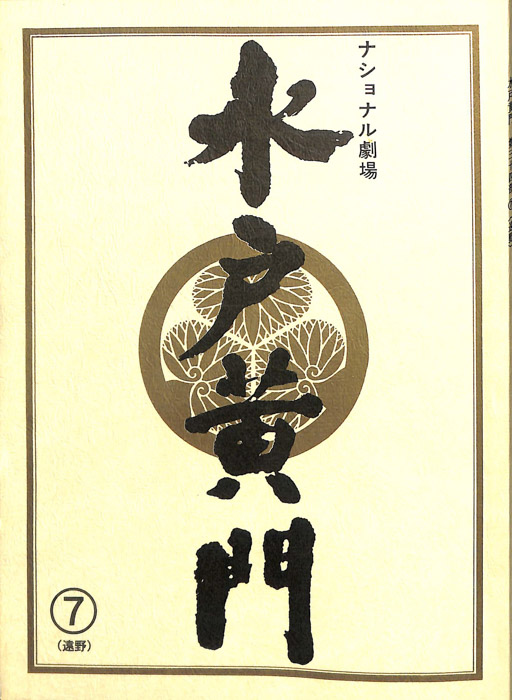 ナショナル劇場
水戸黄門
⑦
(遠野)